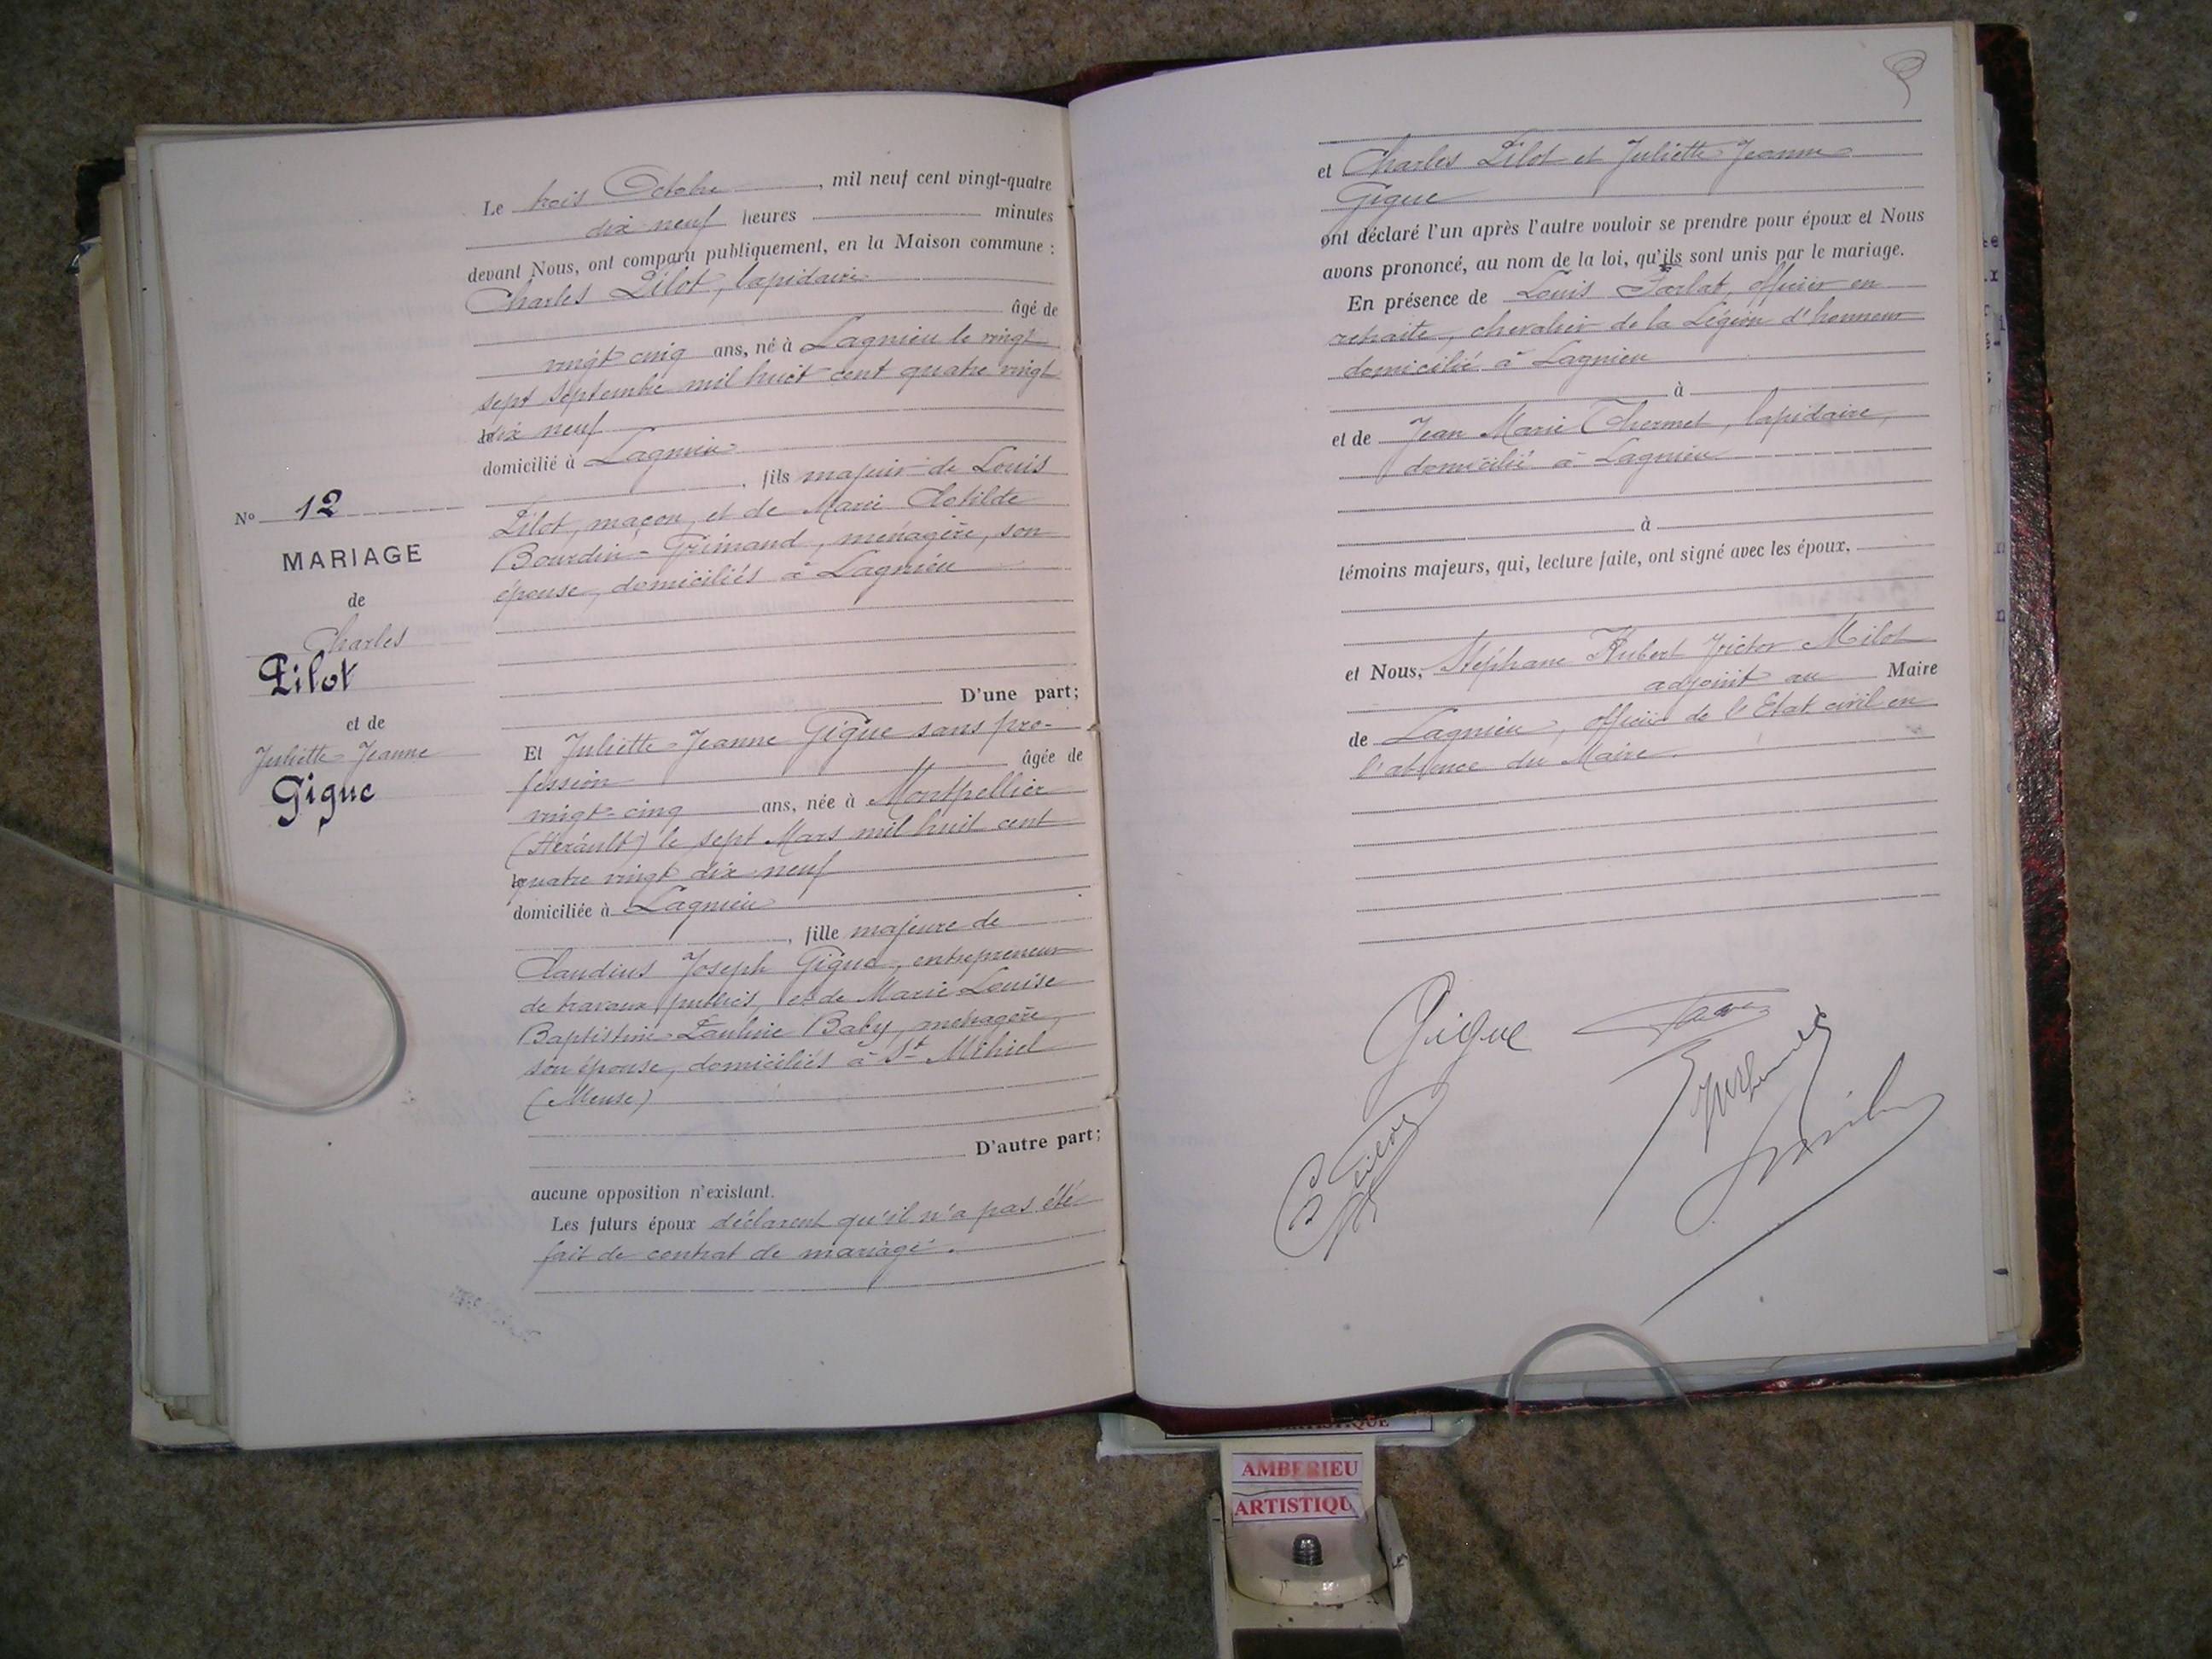 N° 12
MARIAGE
de
Charles
Pilot
et de
Juliette-Jeanne
Gigue
Le trois Octobre, mil neuf cent vingt-quatre
dix neuf heures minutes
devant Nous, ont comparu publiquement, en la Maison commune :
Charles Pilot, lapidaire
âgé de
vingt cinq ans, né à Lagnieu le vingt
sept septembre mil huit cent quatre vingt
dix neuf
domicilié à Lagnieu
, fils majeur de Louis
Pilot, maçon, et de Marie Clotilde
Bourdin-Grimaud, ménagère, son
épouse, domiciliés à Lagnieu
D'une part;
Et Juliette-Jeanne Gigue sans pro-
fession âgée de
vingt-cinq ans, née à Montpellier
(Hérault) le sept Mars mil huit cent
quatre vingt dix neuf
domiciliée à Lagnieu
, fille majeure de
Claudius Joseph Gigue, entrepreneur
de travaux publics, et de Marie Louise
Baptistine-Pauline Baby, ménagère,
son épouse, domiciliés à St Mihiel
(Meuse)
D'autre part;
aucune opposition n'existant.
Les futurs époux déclarent qu'il n'a pas été
fait de contrat de mariage.
et Charles Pilot et Juliette-Jeanne
Gigue
ont déclaré l'un après l'autre vouloir se prendre pour époux et Nous
avons prononcé, au nom de la loi, qu'ils sont unis par le mariage.
En présence de Louis Farlat, officier en
retraite, chevalier de la Légion d'honneur
domicilié à Lagnieu
à
et de Jean Marie Thermet, lapidaire,
domicilié à Lagnieu
à
témoins majeurs, qui, lecture faite, ont signé avec les époux,
et Nous, Stéphane Hubert Victor Milot
adjoint au Maire
de Lagnieu, officier de l'Etat civil en
l'absence du Maire.
Gigue
C Pilot
AMBERIEU
ARTISTIQU